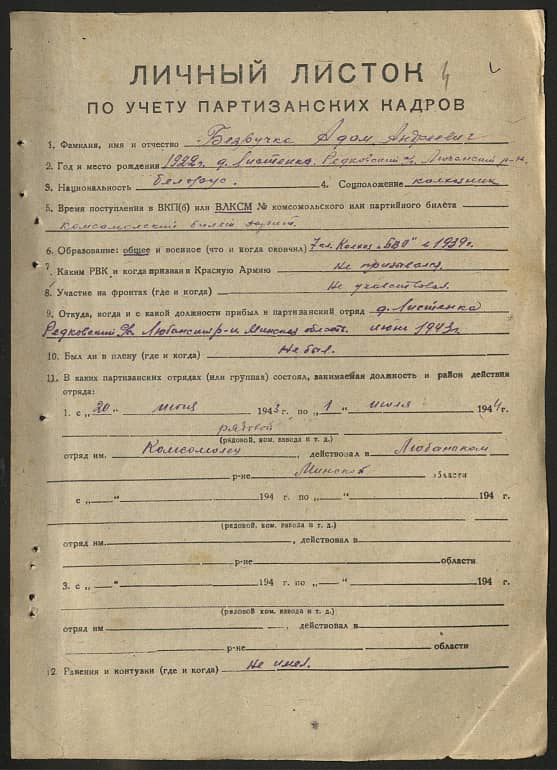 ЛИЧНЫЙ ЛИСТОК 4
ПО УЧЕТУ ПАРТИЗАНСКИХ КАДРОВ
1. Фамилия, имя и отчество Безвучко Адам Андреевич
2. Год и место рождения 1922 г. д. Листенка, Редковский с/с, Любанский р-н
3. Национальность белорус. 4. Соцположение колхозник
5. Время поступления в ВКП(б) или ВЛКСМ № комсомольского или партийного билета
комсомольский билет
6. Образование: общее и военное (что и когда окончил) 7 кл. в 1939 г.
7. Каким РВК и когда призван в Красную Армию Не призывался.
8. Участие на фронтах (где и когда) Не участвовал.
9. Откуда, когда и с какой должности прибыл в партизанский отряд д. Листенка
Редковский с/с Любанский р-н Минская область. июнь 1943 г.
10. Был ли в плену (где и когда) Не был.
11. В каких партизанских отрядах (или группах) состоял, занимаемая должность и район действия
отряда:
1. с „20“ июня 1943 г. по „1“ июля 1944 г.
рядовой
(рядовой, ком. взвода и т. д.)
отряд им. Комсомолец, действовал в Любанском
р-не Минской области
с „ “ 194 г. по „ “ 194 г.
(рядовой, ком. взвода и т. д.)
отряд им. , действовал в
р-не области
3. с „ “ 194 г. по „ “ 194 г.
(рядовой ком. взвода и т. д.)
отряд им , действовал в
р-не области
12. Ранения и контузии (где и когда) Не имел.